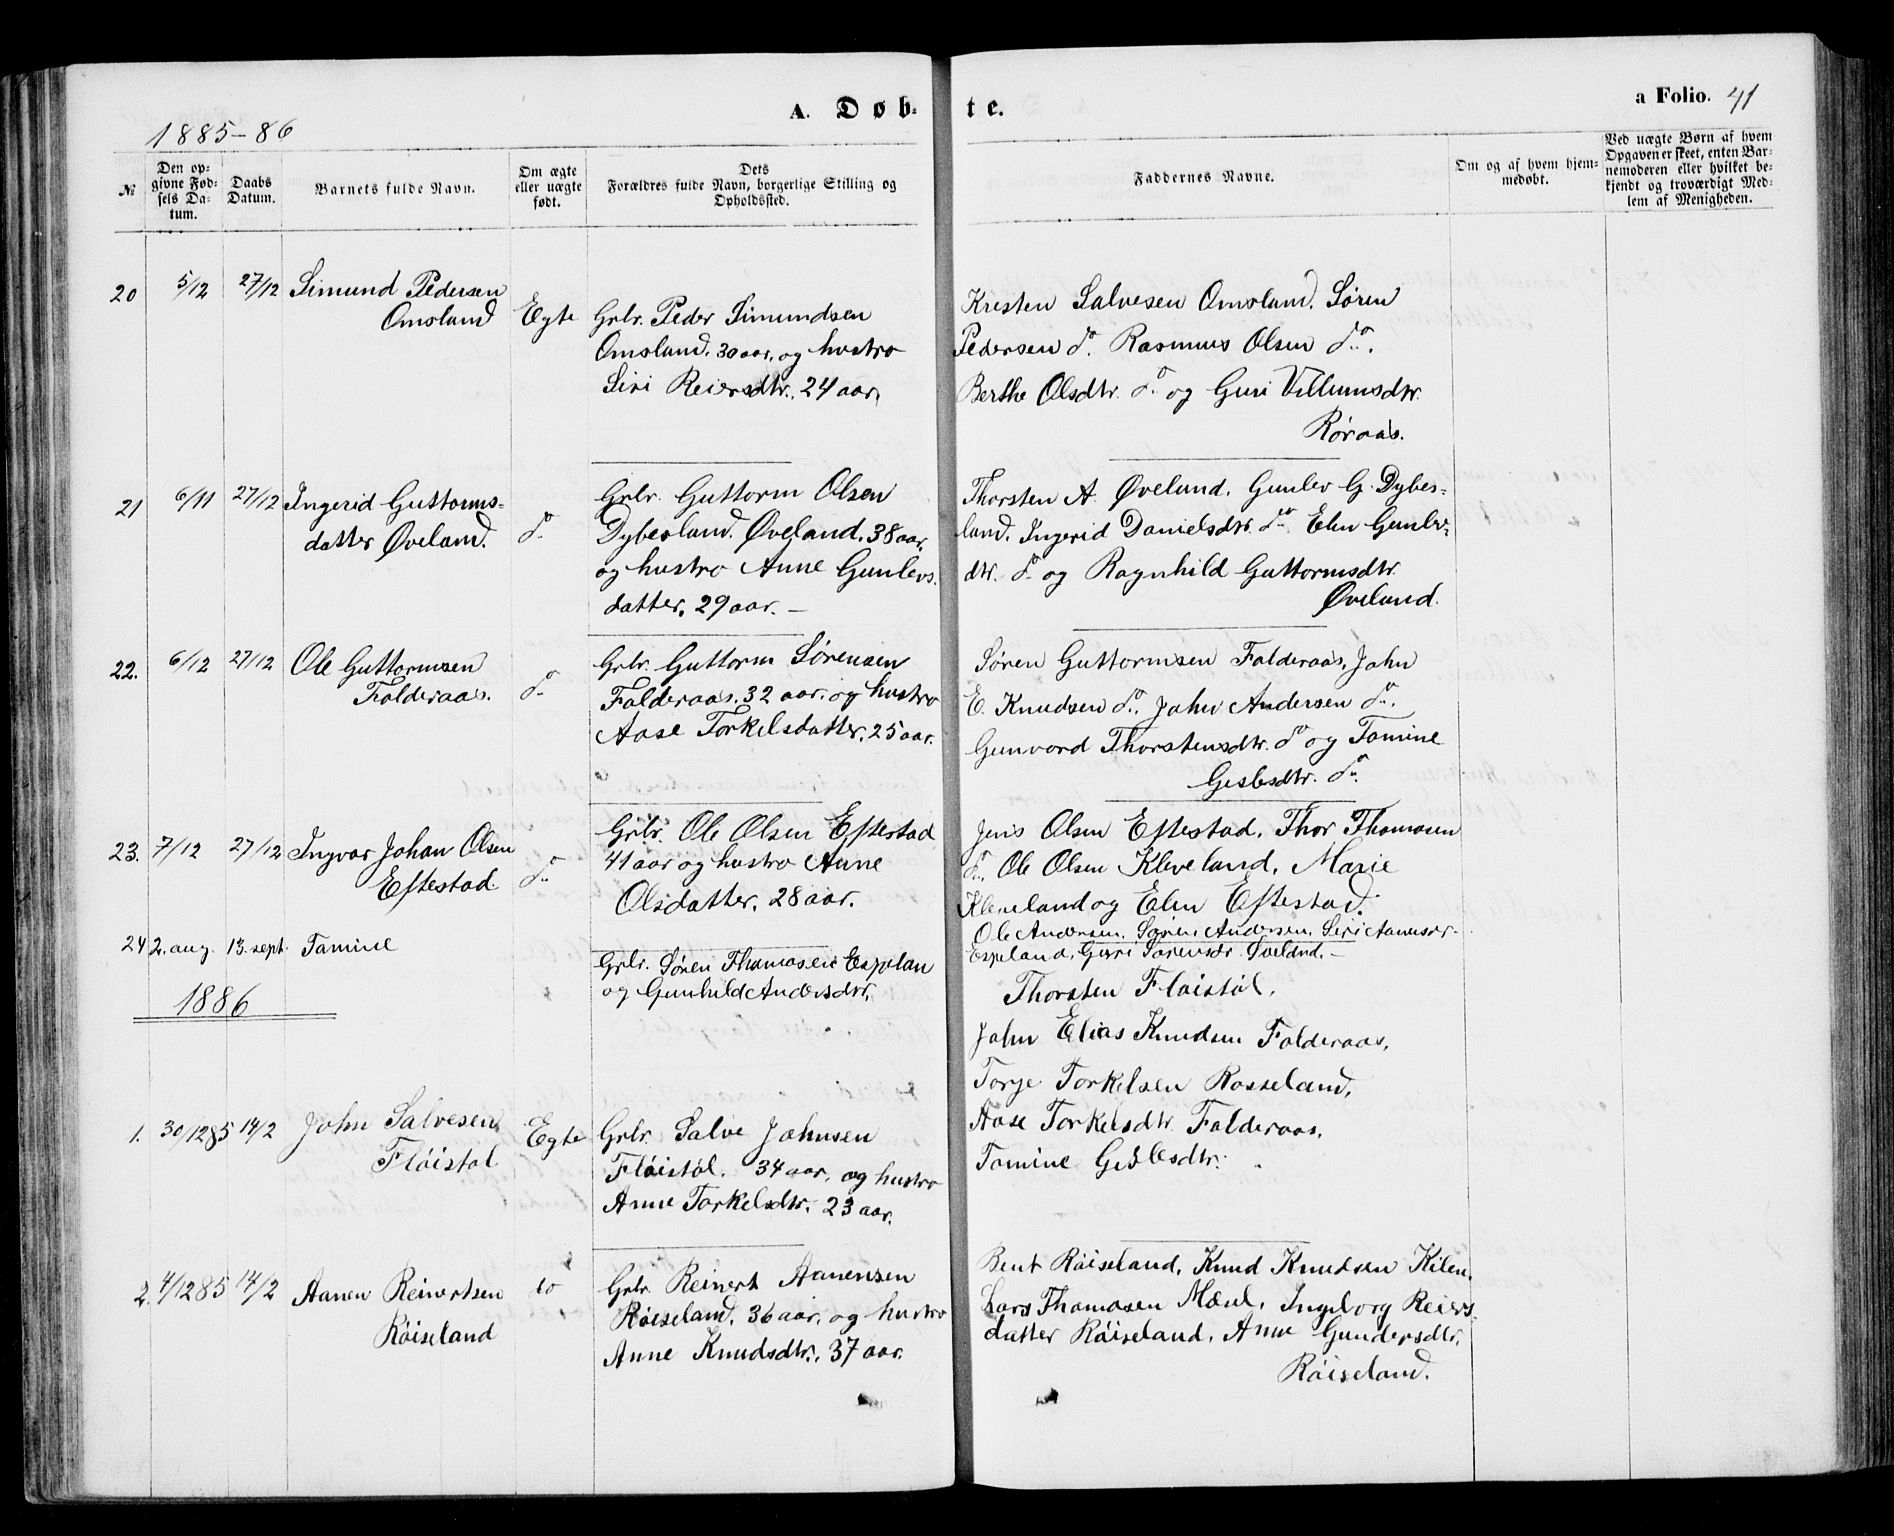 A. Døbte.
a Folio. 41
1885-86
№
Den opgivne Fødsels Datum.
Daabs Datum.
Barnets fulde Navn.
Om ægte eller uægte født.
Dets Forældres fulde Navn, borgerlige Stilling og Opholdssted.
Faddernes Navne.
Om og af hvem hjemmedøbt.
Ved uægte Børn af hvem Opgaven er skeet, enten Barnemoderen eller hvilket bekjendt og troværdigt Medlem af Menigheden.
20 5/12 27/12 Simund Pedersen
Omsland Egte
Grbr. Peder Simundsen
Omsland, 30 aar, og hustro
Siri Reiersdtr., 24 aar.
Kristen Salvesen Omsland, Søren
Pedersen do. Rasmus Olsen do.
Berthe Olsdtr. do og Guri Villumsdtr.
Røraas.
21 6/11 27/12 Ingerid Guttorms-
datter Øveland. do
Grbr. Guttorm Olsen
Dybesland. Øveland, 38 aar,
og hustro Anne Gunlevs-
datter, 29 aar. —
Thorsten A. Øveland, Gunlev G. Dybes-
land. Ingerid Danielsdtr. do Elen Gunlev-
dtr. do og Ragnhild Guttormsdtr.
Øveland.
22. 6/12 27/12 Ole Guttormsen
Folderaas. do
Grbr. Guttorm Sørensen
Folderaas. 32 aar. og hustro
Aase Torkelsdatter, 25 aar.
Søren Guttormsen Folderaas, John
E. Knudsen do. John Andersen do.
Gunvord Thorstensdtr. do og Tomine
Geslesdtr. do.
23. 7/12 27/12 Ingvar Johan Olsen
Eftestad. do
Grbr. Ole Olsen Eftestad
41 aar og hustro Anne
Olsdatter, 28 aar.
Jens Olsen Eftestad, Thor Thomasen
do. Ole Olsen Kleveland, Marie
Kleveland og Elen Eftestad.
24 2. aug. 13. sept. Tomine
Grbr. Søren Thomasen Espelan
og Gunhild Andersdtr.
Ole Andersen. Søren Andersen. Siri Aanensdr.
Espeland, Guri Sørensdr. Øveland. —
1886
1. 30/12 85 14/2 John Salvesen
Fløistøl Egte
Grbr. Salve Johnsen
Fløistøl. 34 aar, og hustro
Anne Torkelsdtr. 23 aar.
Thorsten Fløistøl,
John Elias Knudsen Folderaas,
Torje Torkelsen Rosseland,
Aase Torkelsdtr. Folderaas,
Tomine Geslesdtr.
2. 4/12 85 14/2 Aanen Reinertsen
Røiseland do
Grbr. Reinert Aanensen
Røiseland, 36 aar, og hustro
Anne Knudsdtr., 37 aar.
Bent Røiseland, Knud Knudsen Kilen,
Lars Thomasen Mæsel, Ingeborg Reiers-
datter Røiseland, Anne Gundersdtr.
Røiseland.